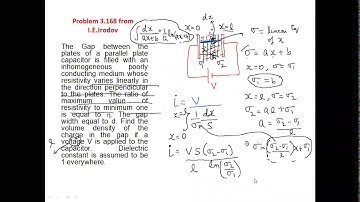 Problem 3.168 from
I.E.Irodov
The Gap between the
plates of a parallel plate
capacitor is filled with an
inhomogeneous poorly
conducting medium whose
resistivity varies linearly in
the direction perpendicular
to the plates. The ratio of
maximum value of
resistivity to minimum one
is equal to η. The gap
width equal to d. Find the
volume density of the
charge in the gap if a
voltage V is applied to the
capacitor. Dielectric
constant is assumed to be
1 everywhere.
dx
x=0
x=l
σ1
σ2
V
σ = ax+b
x=0, σ=σ1
σ1 = b
x=l, σ=σ2
σ2 = al+σ1
a = σ2-σ1/l
i = V
x=0
i = VS(σ2-σ1)
l ln(σ2/σ1)